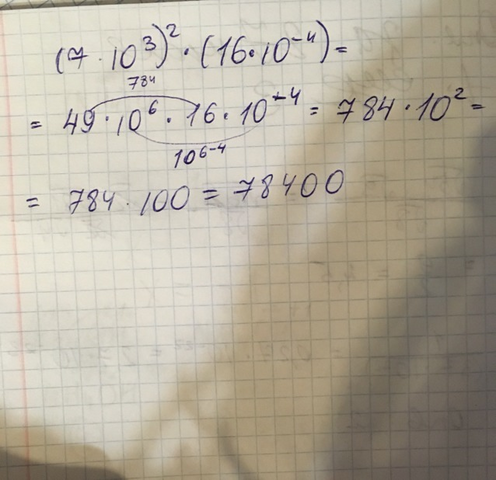 (7 · 10³)² · (16 · 10⁻⁴) =
784
= 49 · 10⁶ · 16 · 10⁻⁴ = 784 · 10² =
10⁶⁻⁴
= 784 · 100 = 78400